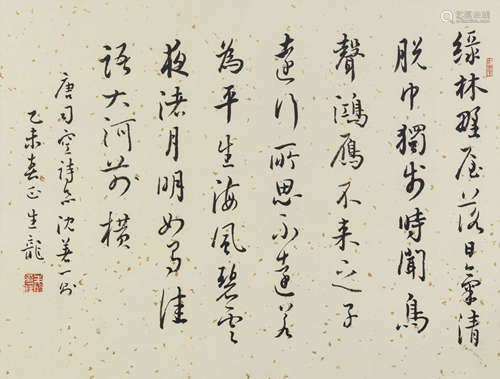 绿林野屋落日氣清
脱巾獨步時聞鳥
聲鴻雁不来之子
遠行所思不遠若
為平生海風碧雲
夜渚月明如有佳
語大河前横
唐司空詩品沈著一則
乙未春正生龍